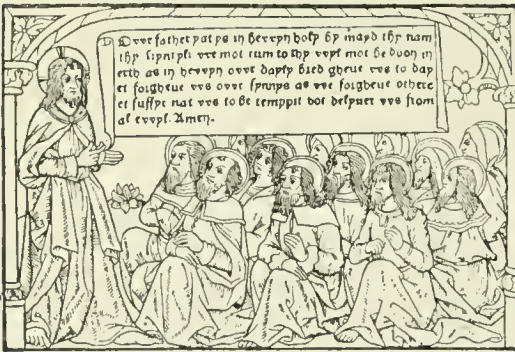 Ovre father yat ys in hevvyn holy by mayd thy nam
thy kyngdom vve mot cum to thy vvyl mot be dvon in
erth as in hevvyn ovre dayly bred gheve vvs to day
et forgheve vvs ovre synnys as vve forgheve othere
et suffyr nat vvs to be temppit bot delyver vvs from
al evvyl. Amen.